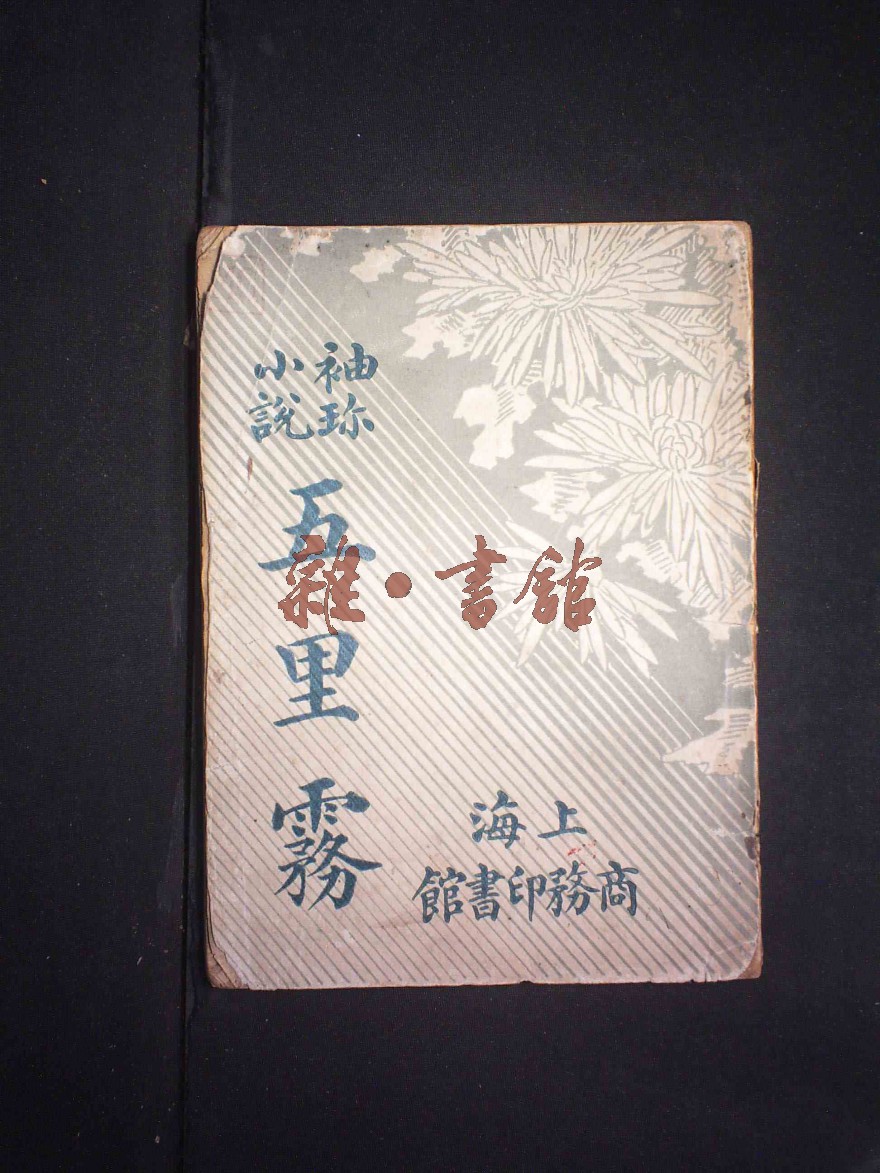 袖珍
小說
五里霧
上海
商務印書館
雜·書館